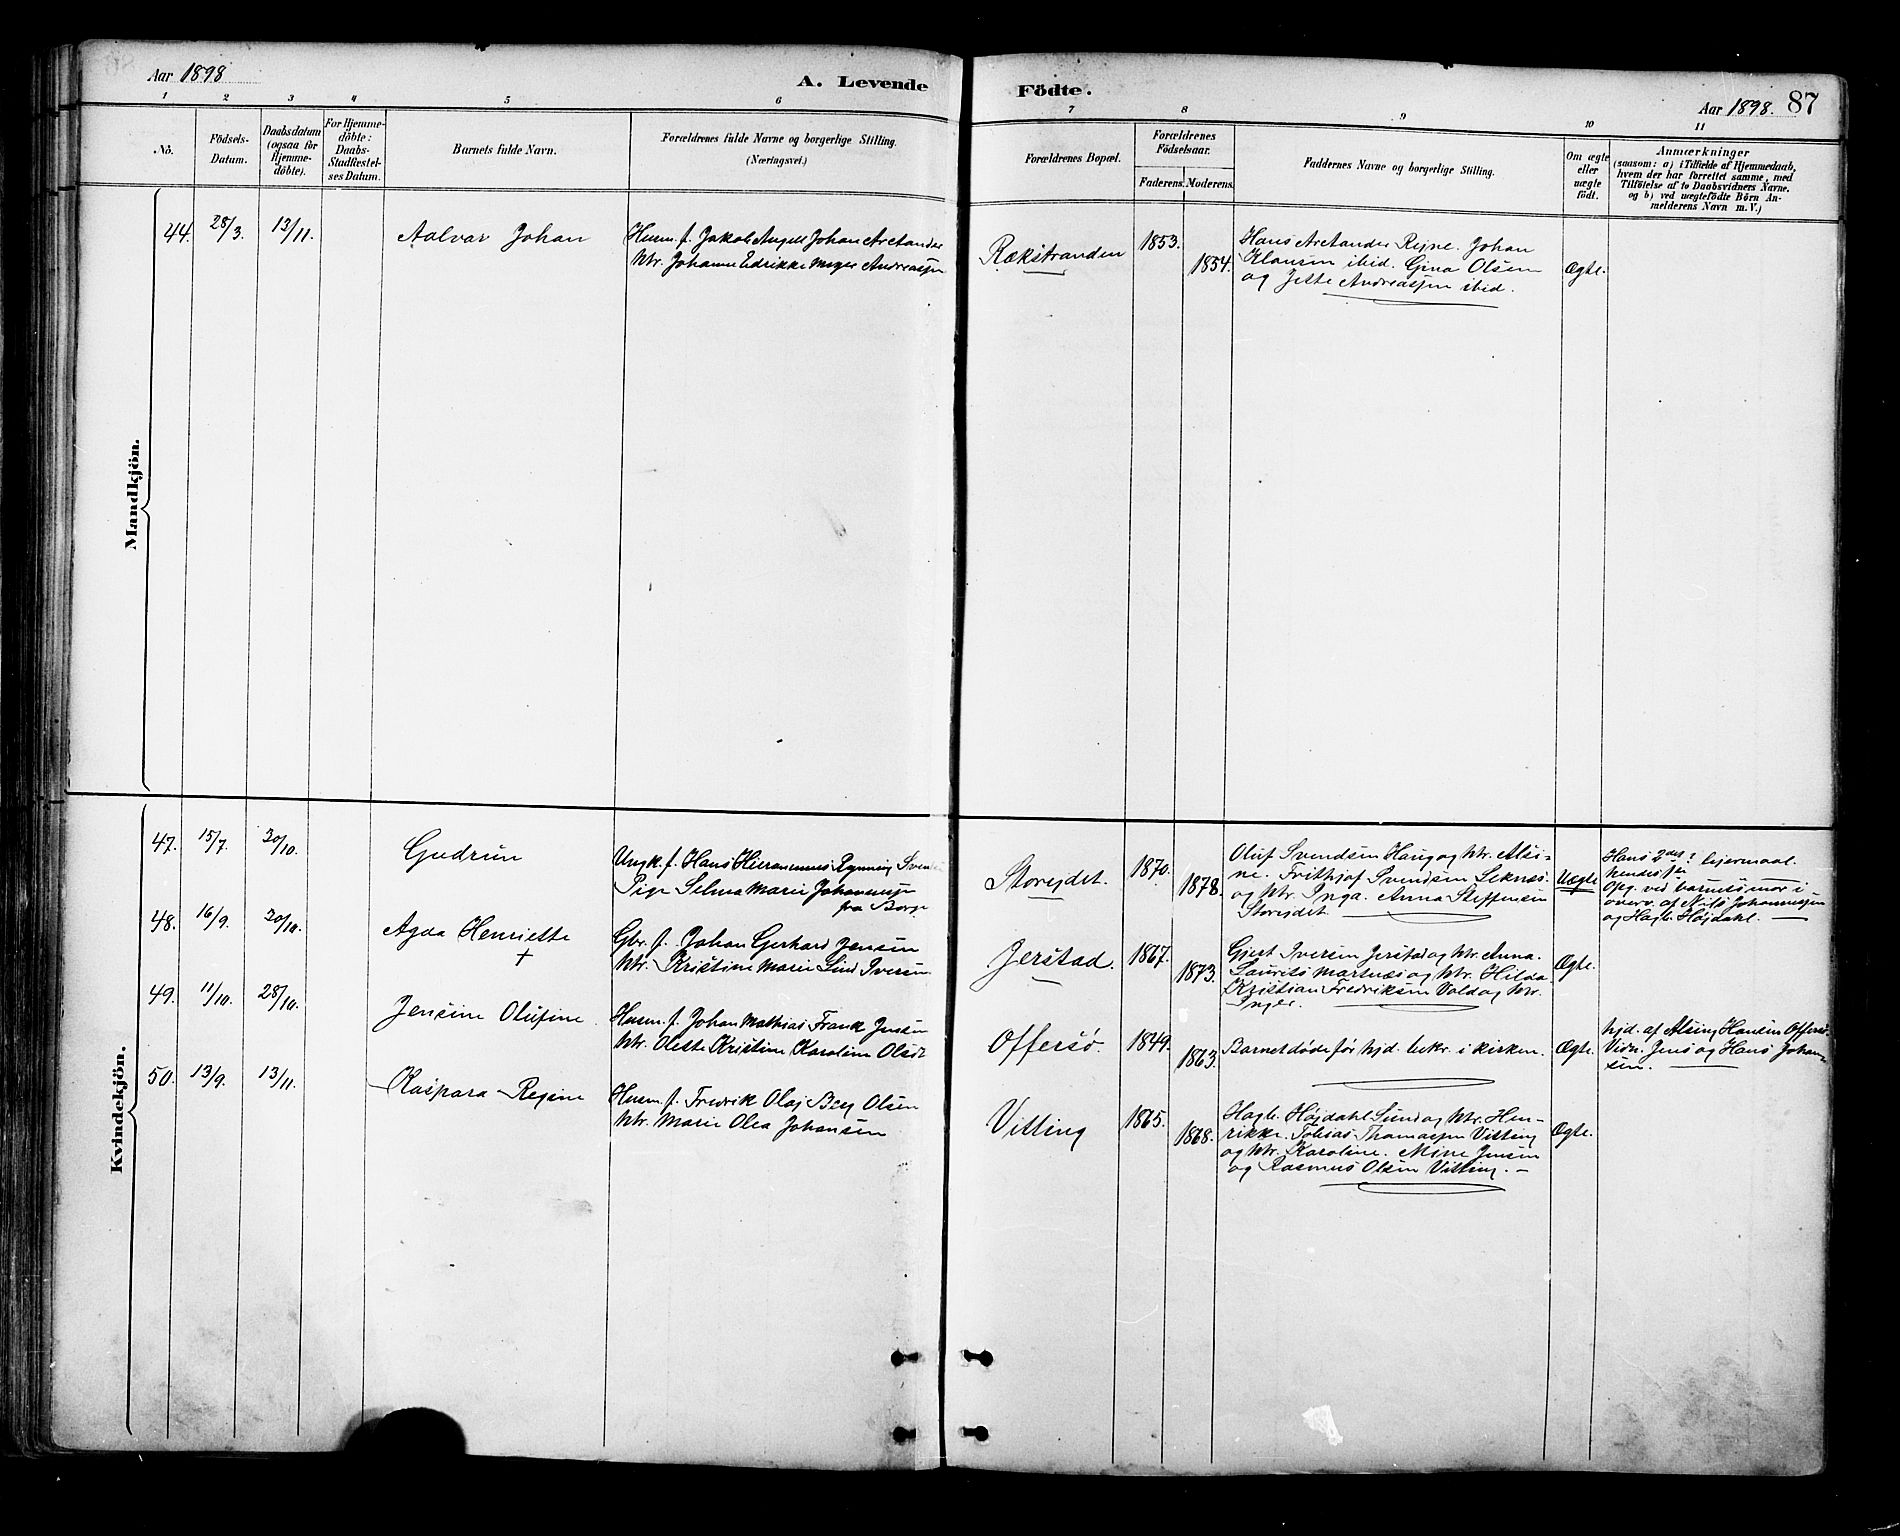 Aar 1898
A. Levende Födte.
Aar 1898. 87
1 2 3 4 5 6 7 8 9 10 11
Nò.
Födsels-Datum.
Daabsdatum (ogsaa for Hjemme-döbte).
For Hjemme-döbte: Daabs-Stadfæstel-ses Datum.
Barnets fulde Navn.
Forældrenes fulde Navne og borgerlige Stilling. (Næringsvei.)
Forældrenes Bopæl.
Forældrenes Födselsaar.
Faderens. Moderens.
Faddernes Navne og borgerlige Stilling.
Om ægte eller uægte födt.
Anmærkninger
(saasom: a) i Tilfælde af Hjemmedaab,
hvem der har forrettet samme, med
Tilföielse af to Daabsvidners Navne.
og b) ved uægtefödte Börn An-
melderens Navn m. V.)
Mandkjön.
44. 28/3. 13/11. Aalvar Johan
Husm. f. Jakob Angell Johan Aretander
Htr. Johanna Edrikke Meyer Andreassen
Rækstranden 1853. 1854.
Hans Aretander Rejne. Johan
Klausen ibid. Gina Olsen
og Jette Andreassen ibid.
Ægte.
Kvindekjön.
47. 15/7. 30/10. Gudrun
Ungk. f. Hans Hieronimus Rynning Svends
Pige Selma Marie Johannesse
fra Borge
Storejdet. 1870. 1878.
Oluf Svendsen Haug og Htr. Alsi-
ne. Frithjof Svendsen Seknes
og Htr. Inga. Anna Steffensen
Storejdet
Uægte
Hans 2det? lejermaal.
hendes 1ste
Opg. ved barnets mor i
overv. af Nils Johannessen
og Hagb. Højdahl.
48. 16/9. 30/10. Agda Henriette
+
Gbr. f. Johan Gerhard Jensen
Htr. Kristine Marie Lind Iversen
Jerstad. 1867. 1873.
Gjert Iversen Jerstad og Htr. Anna.
Laurits Martnæs og Htr. Hilda
Kristian Fredriksen Vold og Htr.
Inger.
Ægte.
49. 11/10. 28/10. Jensine Olufine.
Husm. f. Johan Mathias Frank Jensen
Htr. Olette Kristine Karoline Olsdr
Offersø. 1849. 1863.
Barnet døde før hjd. bekr. i kirken.
Ægte.
hjd. af Alsing Hansen Offersø.
Vidn. Jens og Hans Johan-
sen.
50. 13/9. 13/11. Kaspara Regine
Husm. f. Fredrik Olaj Berg Olsen
Htr. Marie Olea Johansen
Vitting 1865. 1868.
Hagb. Højdahl Sund og Htr. Hen-
rikke. Tobias Thomassen Vitting
og Htr. Karoline. Mine Jensen
og Rasmus Olsen Vitting.
Ægte.